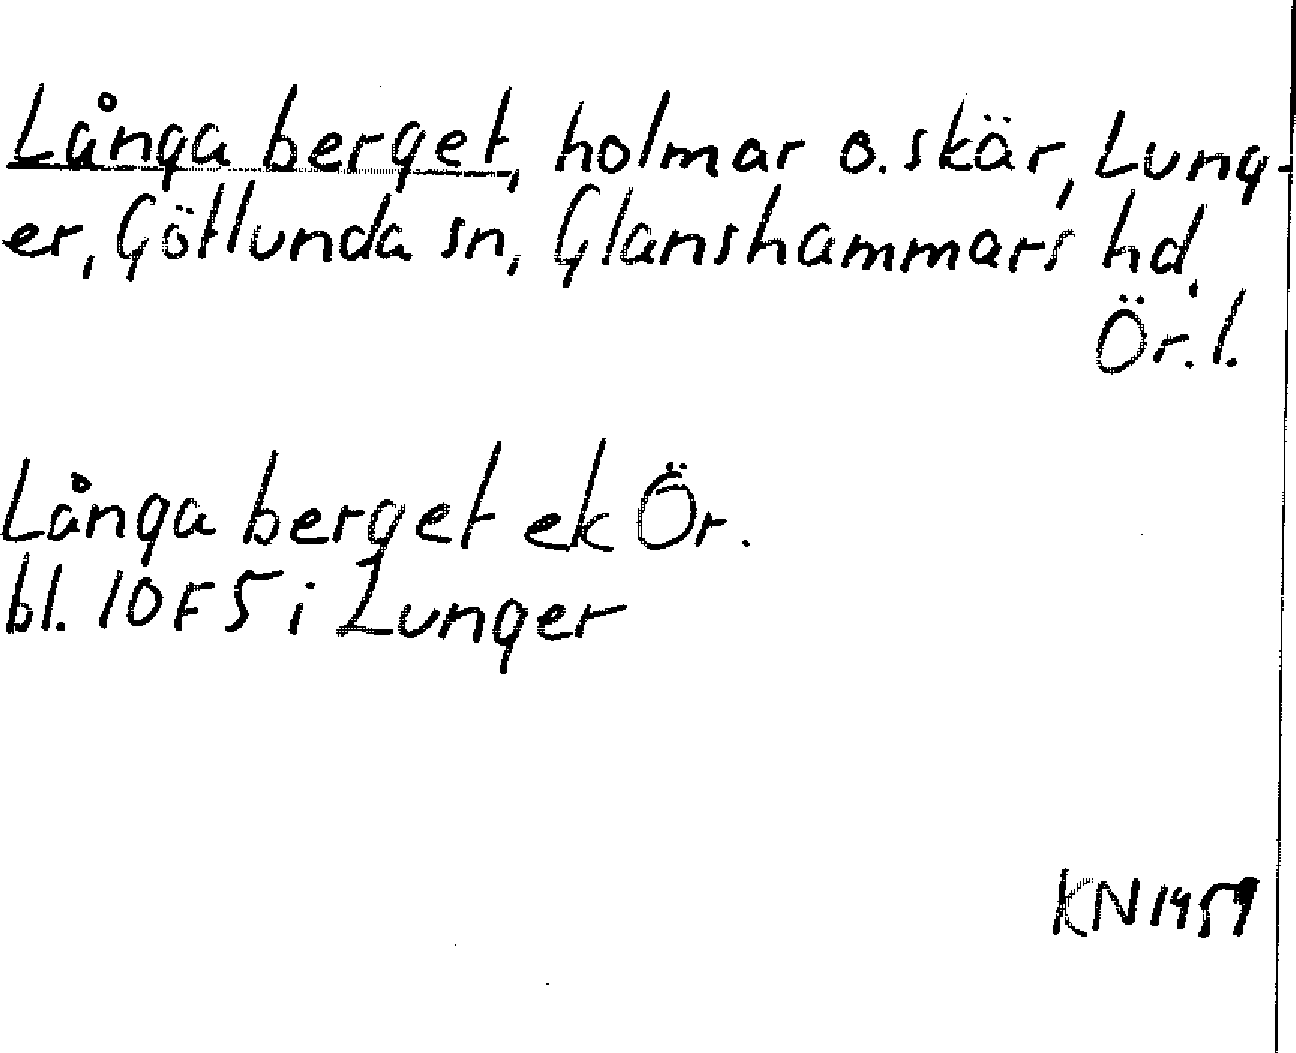 Långa berget, holmar o. skär, Lung-
er, Götlunda sn, Glanshammars hd.
Ör. l.
Långa berget ek Ör.
bl. 10F5 i Lunger
KN 1959